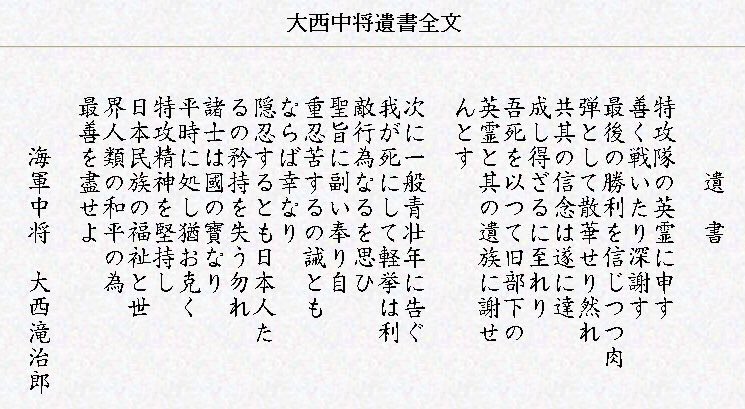 大西中将遺書全文
遺書
特攻隊の英霊に申す
善く戦いたり深謝す
最後の勝利を信じつつ肉
弾として散華せり然れ
共其の信念は遂に達
成し得ざるに至れり
吾死を以って旧部下の
英霊と其の遺族に謝せ
んとす
次に一般青壮年に告ぐ
我が死にして軽挙は利
敵行為なるを思ひ
聖旨に副い奉り自
重忍苦するの誡とも
ならば幸なり
隠忍するとも日本人た
るの矜持を失う勿れ
諸士は國の寶なり
平時に処し猶お克く
特攻精神を堅持し
日本民族の福祉と世
界人類の和平の為
最善を盡せよ
海軍中将　大西滝治郎